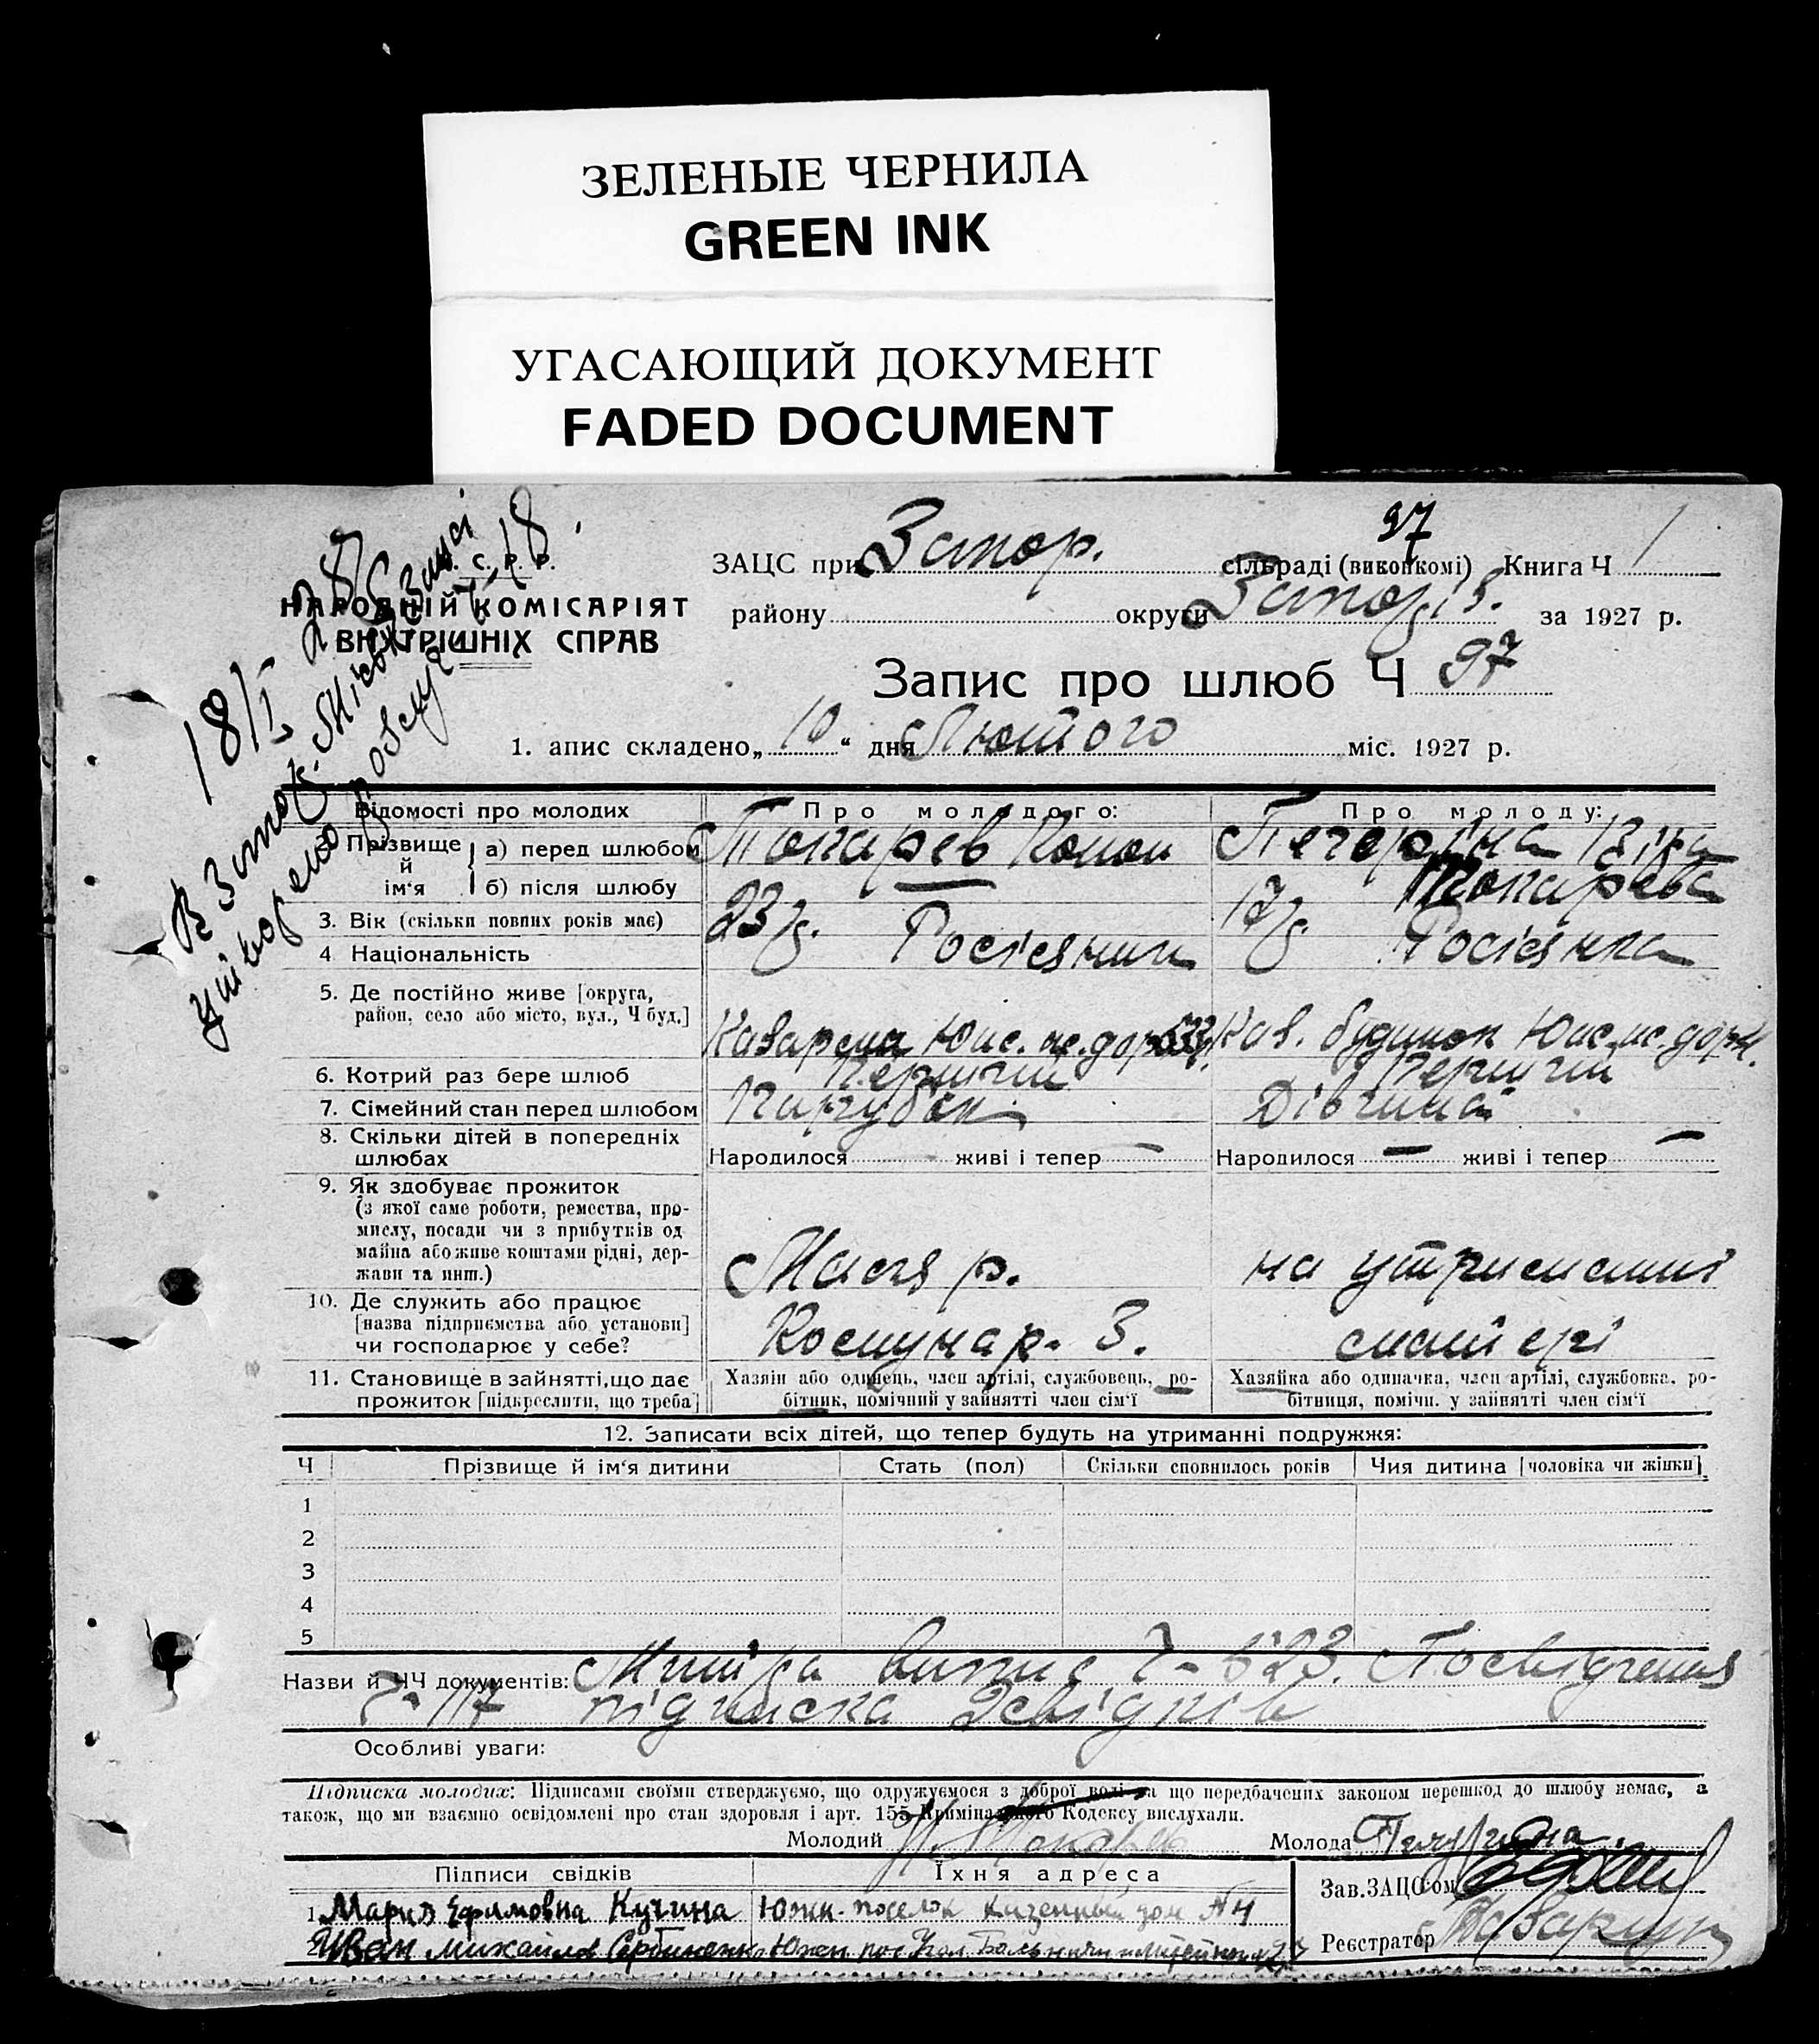 ЗЕЛЕНЫЕ ЧЕРНИЛА
GREEN INK
УГАСАЮЩИЙ ДОКУМЕНТ
FADED DOCUMENT
С. Р. Р.
НАРОДНІЙ КОМІСАРІЯТ
ВНУТРІШНІХ СПРАВ
97
ЗАЦС при Запор. сільраді (виконкомі) Книга Ч 1
району округи Запоріз. за 1927 р.
Запис про шлюб Ч 97
1. апис складено „ 10 “ дня Лютого міс. 1927 р.
Відомості про молодих Про молодого: Про молоду:
Прізвище й ім‘я а) перед шлюбом Токарев Конон Печоріна Віра
б) після шлюбу Токарева
3. Вік (скільки повних років має) 23 р. 17 р.
4 Національність Росіянин Росіянка
5. Де постійно живе [округа,
район, село або місто, вул., Ч буд.] Казарма Юж. ж. дор. Каз. будинок Юж. ж. дор.
6. Котрий раз бере шлюб Перший Перший
7. Сімейний стан перед шлюбом Парубок Дівчина
8. Скільки дітей в попередніх
шлюбах Народилося — живі і тепер — Народилося — живі і тепер —
9. Як здобуває прожиток
(з якої саме роботи, ремества, про-
мислу, посади чи з прибутків од
майна або живе коштами рідні, дер-
жави та инш.) на утриманні
10. Де служить або працює
[назва підприємства або установи]
чи господарює у себе? Комунар. З. матері
11. Становище в зайнятті, що дає
прожиток [підкреслити, що треба]
Хазяін або одинець, член артілі, службовець, ро-
бітник, помічний у зайнятті член сім‘ї
Хазяйка або одиначка, член артілі, службовка, ро-
бітниця, помічн. у зайнятті член сім‘ї
12. Записати всіх дітей, що тепер будуть на утриманні подружжя:
Ч Прізвище й ім‘я дитини Стать (пол) Скільки сповнилось років Чия дитина [чоловіка чи жінки]
1
2
3
4
5
Назви й ЧЧ документів: Метрика випис Ч- 623. Посвідчення
Ч- 117 підписка свідків
Особливі уваги:
Підписка молодих: Підписами своїми стверджуємо, що одружуємося з доброї волі та що передбачених законом перешкод до шлюбу немає, а
також, що ми взаємно освідомлені про стан здоровля і арт. 155 Кримінального Кодексу вислухали.
Молодий Токарев Молода
Підписи свідків Їхня адреса
1. Мария Ефимовна Кучина Южн. поселок казенный дом №4
2. Иван Михайлов Южн пос
Зав. ЗАЦСом
Реєстратор